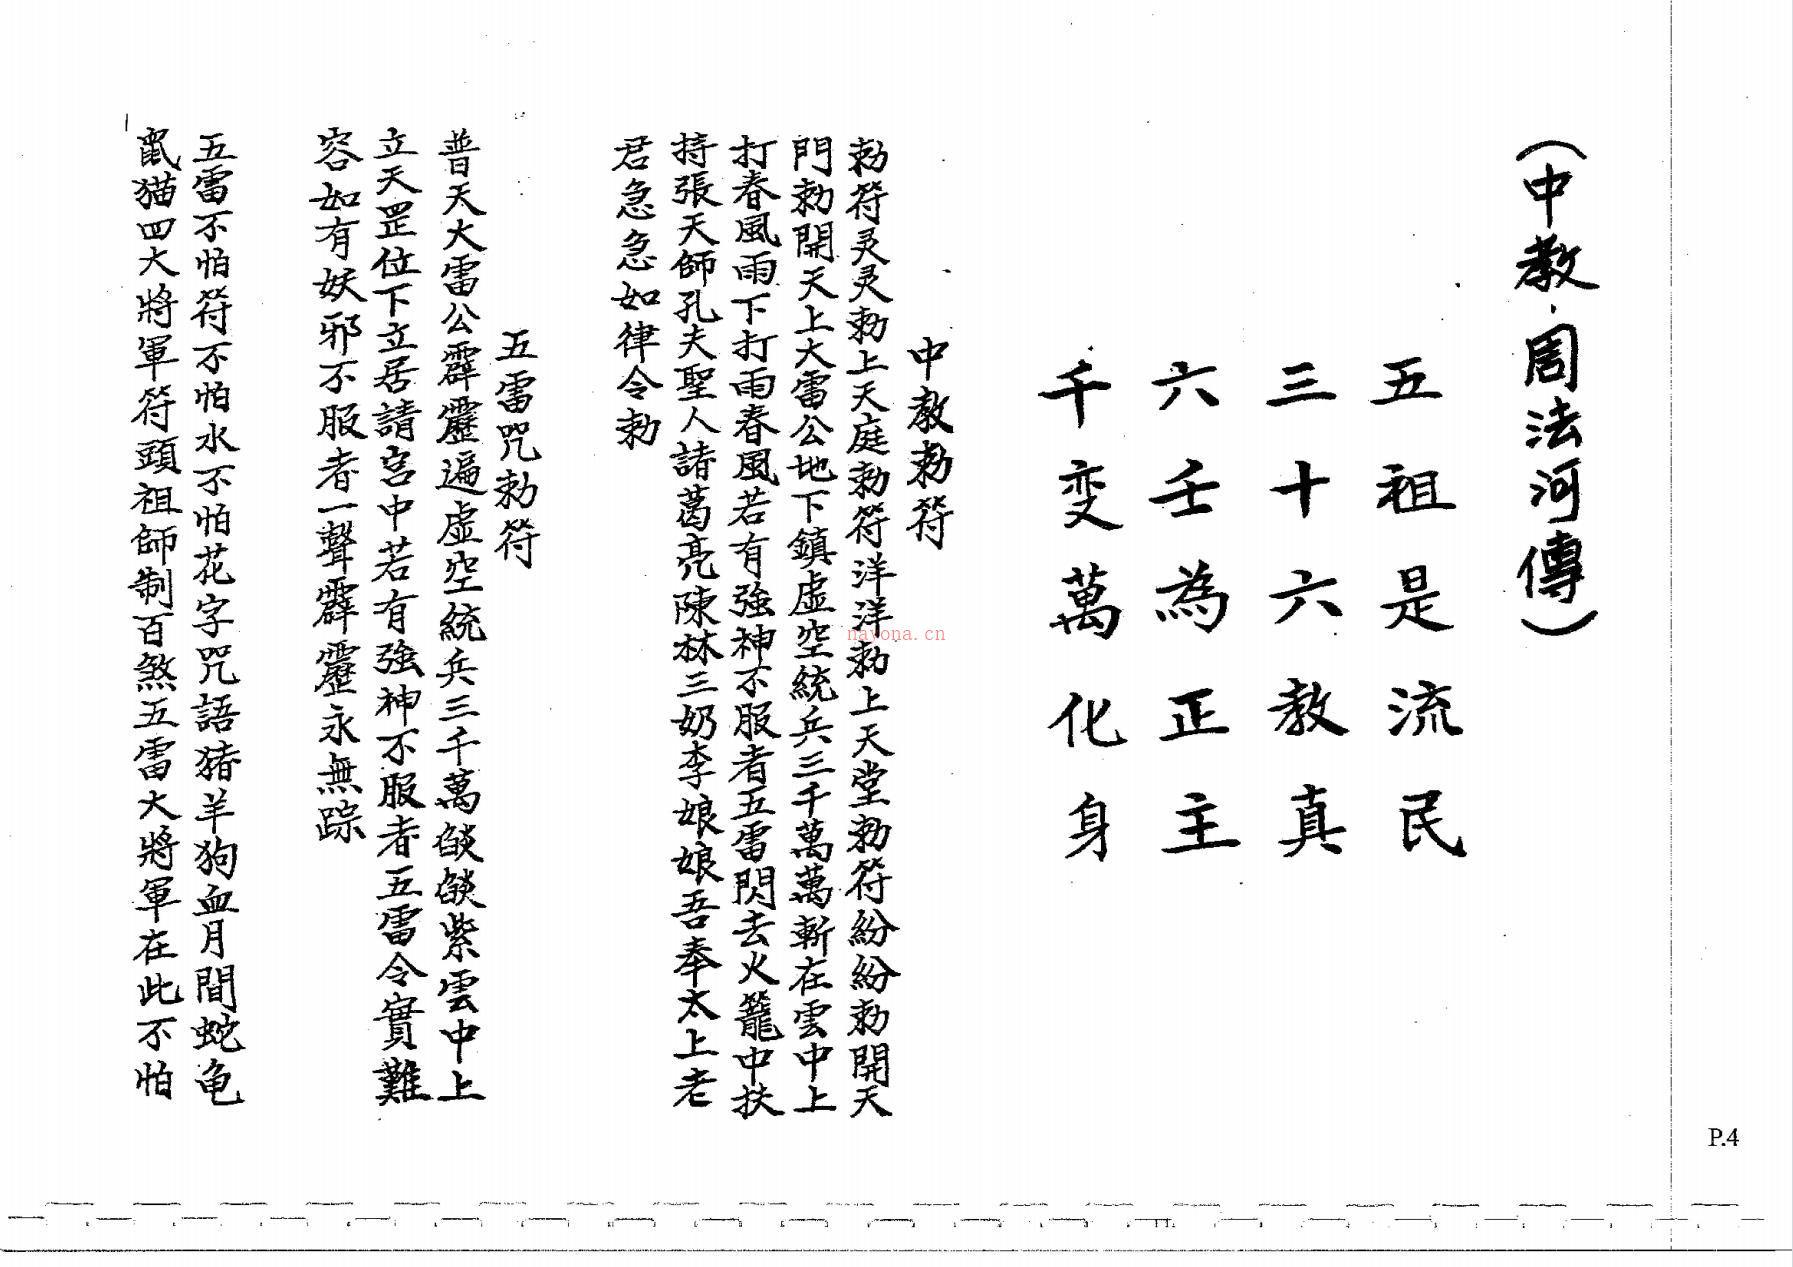 (中教·周法河傳)
五祖是流民
三十六教真
六壬為正主
千变萬化身
中教勅符
勅符灵灵勅上天庭勅符洋洋勅上天堂勅符紛紛勅開天
門勅開天上大雷公地下鎮虛空統兵三千萬萬斬在雲中上
打春風雨下打雨春風若有強神不服者五雷閃去火籠中扶
持張天師孔夫聖人諸葛亮陳林三奶李娘娘吾奉太上老
君急急如律令勅
五雷咒勅符
普天大雷公霹靂遍虛空統兵三千萬燄燄紫雲中上
立天罡位下立居請宮中若有強神不服者五雷令實難
容如有妖邪不服者一聲霹靂永無踪
五雷不怕符不怕水不怕花字咒語猪羊狗血月間蛇龟
鼠猫四大將軍符頭祖師制百煞五雷大將軍在此不怕
navona.cn
P.4